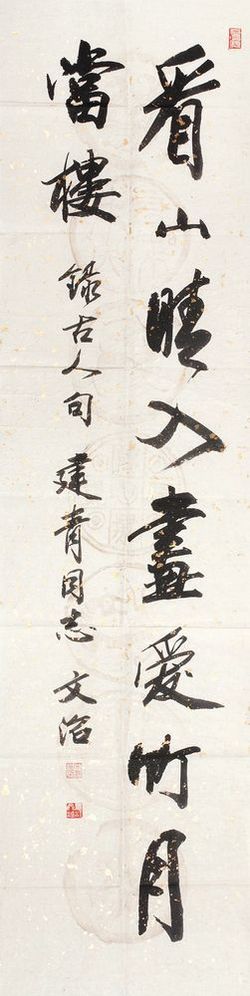 看山晴入畫愛竹月
當樓 錄古人句 建青同志 文治